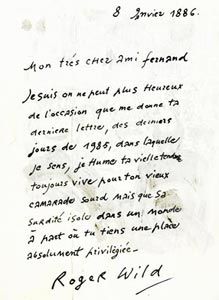 8 Janvier 1986.
Mon très cher ami fernand
Je suis on ne peut plus Heureux
de l'occasion que me donne ta
derniere lettre, des derniers
jours de 1985, dans laquelle
je sens, je Hume ta vielle
toujours vive pour ton vieux
camarade sourd mais que sa
surdité isole dans un monde
à part où tu tiens une place
absolument privilégiée.
Roger Wild